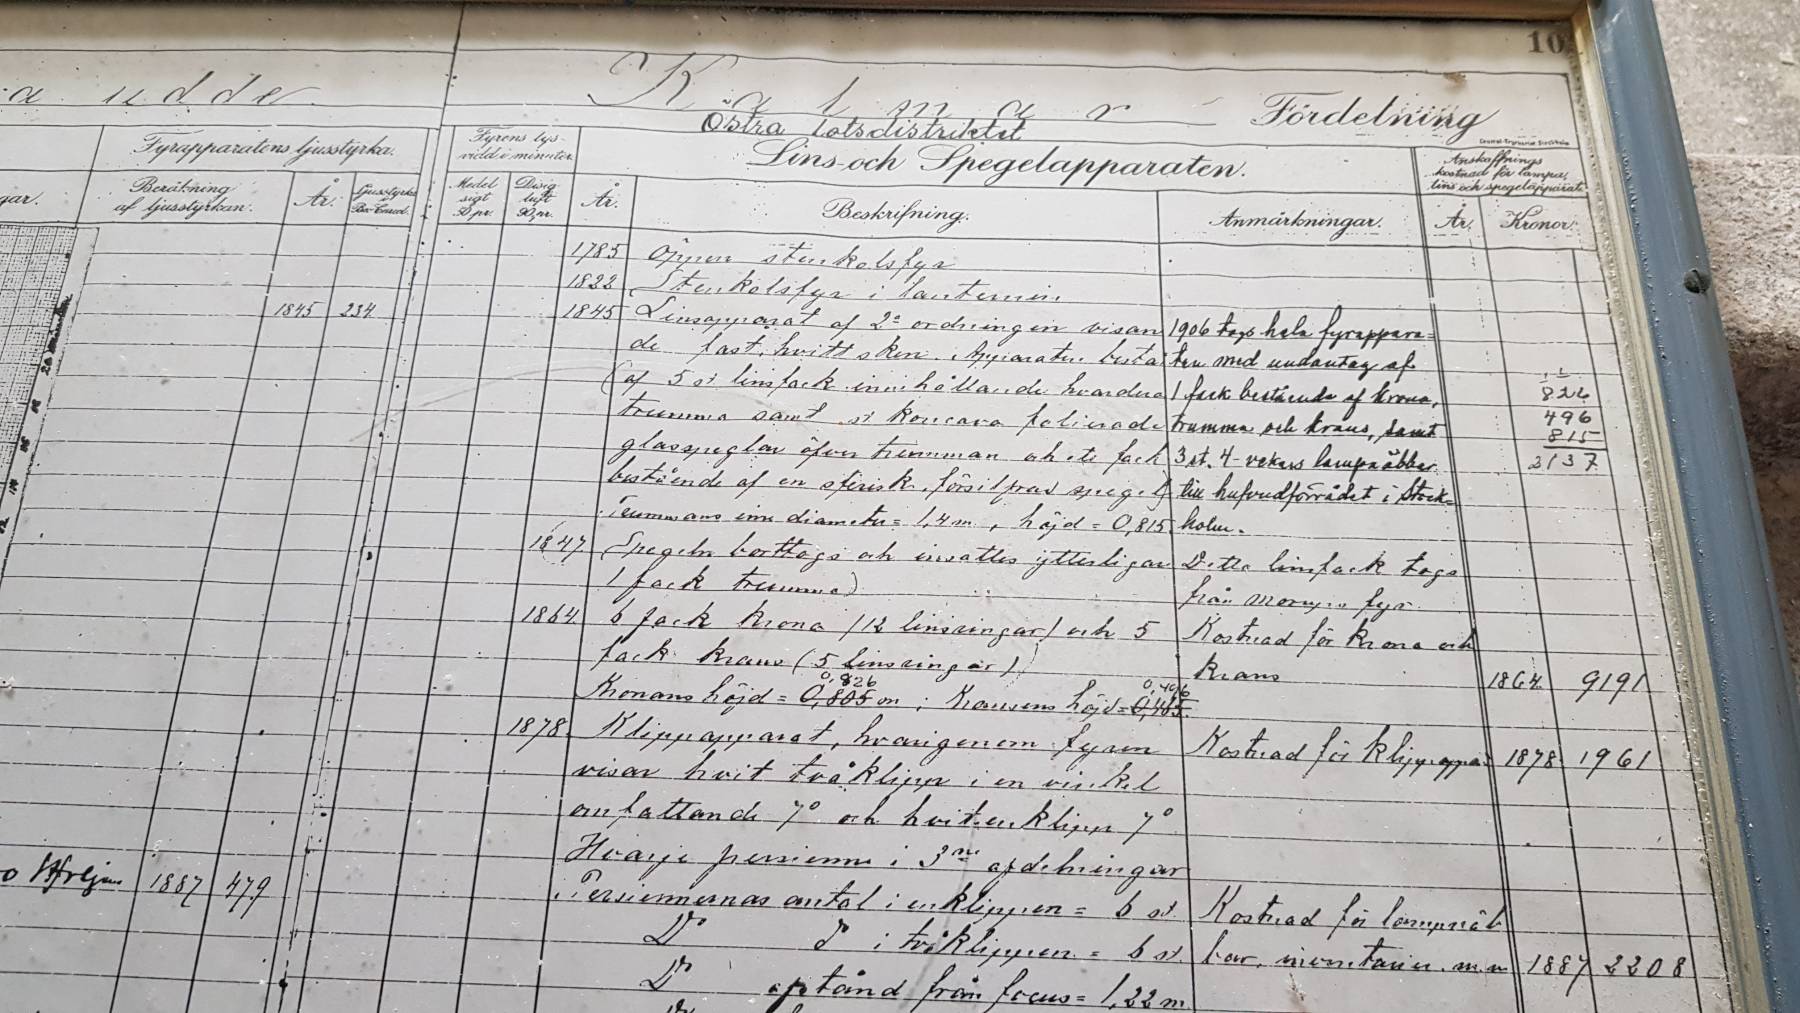 10
a udde
Kalmar Fördelning
Östra lotsdistriktet
Central-Tryckeriet, Stockholm
Fyrapparatens ljusstyrka.
Fyrens lys-
vidd i minuter.
Lins- och Spegelapparaten.
Anskaffnings
kostnad för lampa,
lins och spegelapparat.
gar.
Beräkning
af ljusstyrkan.
År.
Ljusstyrka
Medel
sigt
50 pr.
Disig
luft
90 pr.
År.
Beskrifning.
Anmärkningar.
År.
Kronor.
1785 Öppen stenkolsfyr
1822 Stenkolsfyr i lanternin
1845 234
1845 Linsapparat af 2a ordningen visan
de fast, hvitt sken. Apparaten bestå
(af 5 st linsfack innehållande hvardera
trumma samt st konkava polierade
glasspeglar öfver trumman och ett fack
bestående af en sferisk, försilfrad spegel)
Trummans inre diameter = 1,4 m, höjd = 0,815.
1906 togs hela fyrappara=
ten med undantag af
1 fack bestående af krona,
trumma och krans, samt
3 st. 4-vekars lampnäbbar
till hufvudförrådet i Stock=
holm.
826
496
815
2137
1847 (Spegeln borttogs och insattes ytterligare
1 fack trumma)
Detta linsfack togs
från fyr.
1864 6 fack krona (12 linsringar) och 5
fack krans (5 linsringar)
0,826 0,496
Kronans höjd = 0,805 m; Kransens höjd = 0,485.
Kostnad för krona och
krans 1864 9191
1878. Klippapparat, hvarigenom fyren
visar hvit tvåklipp i en vinkel
omfattande 7° och hvit enklipp 7°
Hvarje persienn i 3ne afdelningar
Kostnad för klippappa 1878 1961
1887 479
Persiennernas antal i enklippen = 6 st.
Do do i tvåklippen = 6 st.
Do afstånd från focus = 1,22 m.
Kostnad för lampnäb
bar, inventarier m.m 1887 2208